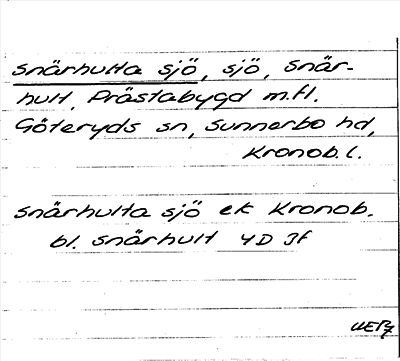 Snärhulta sjö, sjö, Snär-
hult, Prästabygd m.fl.
Göteryds sn, Sunnerbo hd,
Kronob. l.
Snärhulta sjö ek Kronob.
bl. Snärhult 4D 3f